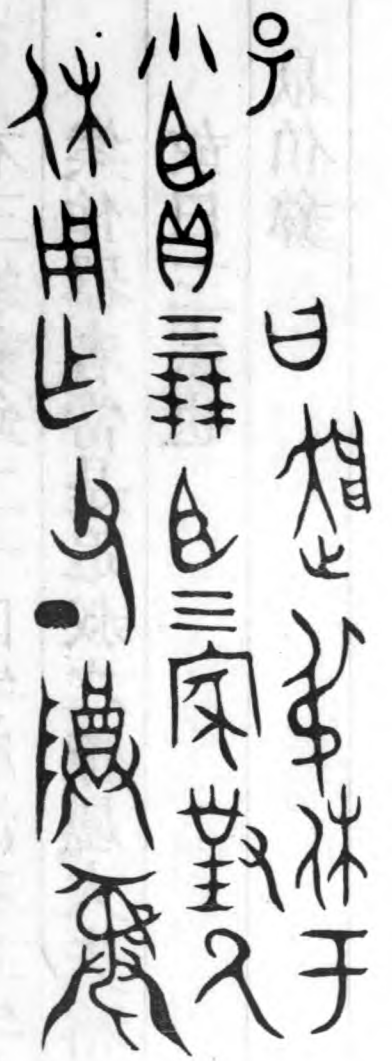 昜曰叔休于
小臣貝三朋臣三家對厥
休用乍父丁尊彝